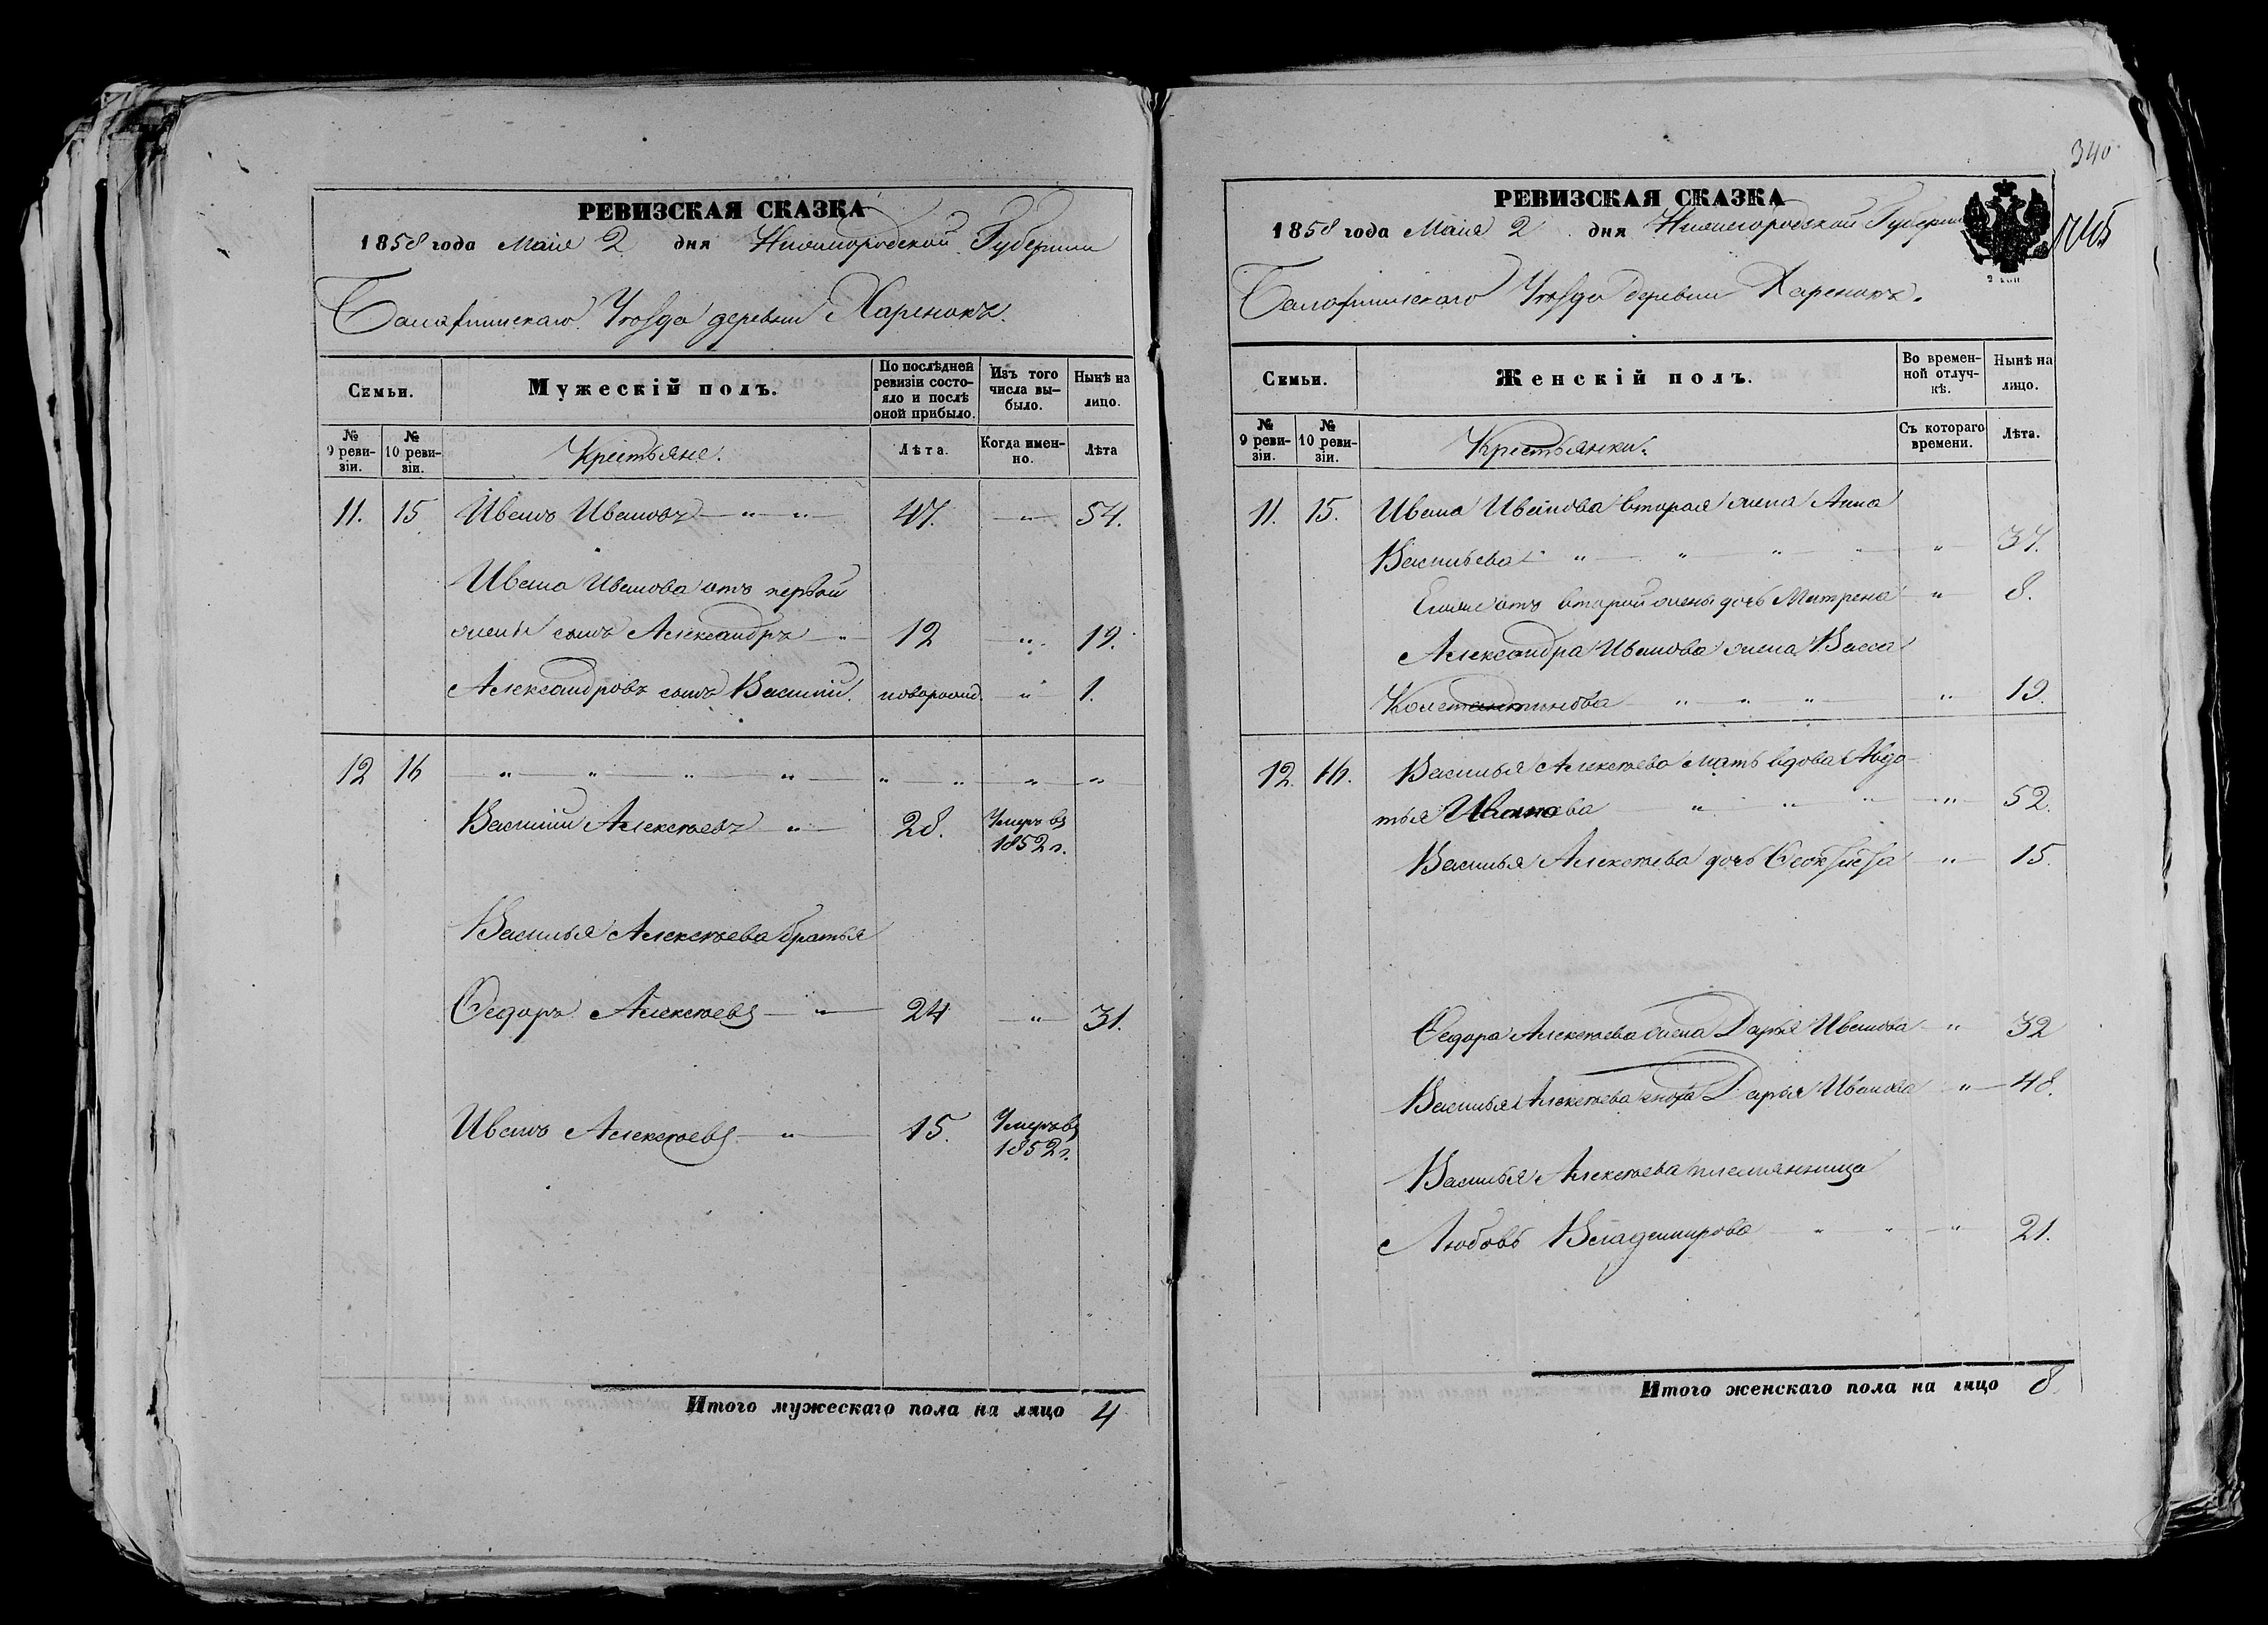 РЕВИЗСКАЯ СКАЗКА
1858 года Маія 2 дня Нижегородской Губерніи
Балахнинскаго Уѣзда деревни Харенокъ.
Семьи. Мужескій полъ. По послѣдней ревизіи состояло и послѣ оной прибыло. Изъ того числа выбыло. Нынѣ на лицо.
№ 9 ревизіи. № 10 ревизіи. Крестьяне. Лѣта. Когда именно. Лѣта
11. 15 Иванъ Ивановъ — " — " — 47. — " — 54.
Ивана Иванова отъ первой
жены сынъ Александръ — " 12 " 19.
Александровъ сынъ Василій. новорожд. — " — 1.
12 16 — " — " — " — " — " — " — " — " —
Василій Алексѣевъ — " — 28. Умеръ въ 1852 г.
Василья Алексѣева братья
Ѳедоръ Алексѣевъ — " — 24 — " — 31.
Иванъ Алексѣевъ — " — 15. Умеръ въ 1852 г.
Итого мужескаго пола на лицо 4
340
РЕВИЗСКАЯ СКАЗКА
1858 года Маія 2 дня Нижегородской Губерніи
Балахнинскаго Уѣзда деревни Харенокъ.
Семьи. Женскій полъ. Во временной отлучкѣ. Нынѣ на лицо.
№ 9 ревизіи. № 10 ревизіи. Крестьянки. Съ котораго времени. Лѣта.
11. 15. Ивана Иванова вторая жена Анна
Васильева — " — " — " — " — 37.
Егоже отъ второй жены дочь Матрена " — 8.
Александра Иванова жена Васса
Констант­инова — " — " — " — " — 19.
12. 16. Василья Алексѣева мать вдова Авдо-
тья Иванова — " — " — " — " — 52.
Василья Алексѣева дочь Ѳеоктиста — " — 15.
Ѳедора Алексѣева жена Дарья Иванова — " 32
Василья Алексѣева сноха Дарья Иванова — " — 48.
Василья Алексѣева племянница
Любовь Владимирова — " — " — " — 21.
Итого женскаго пола на лицо 8.